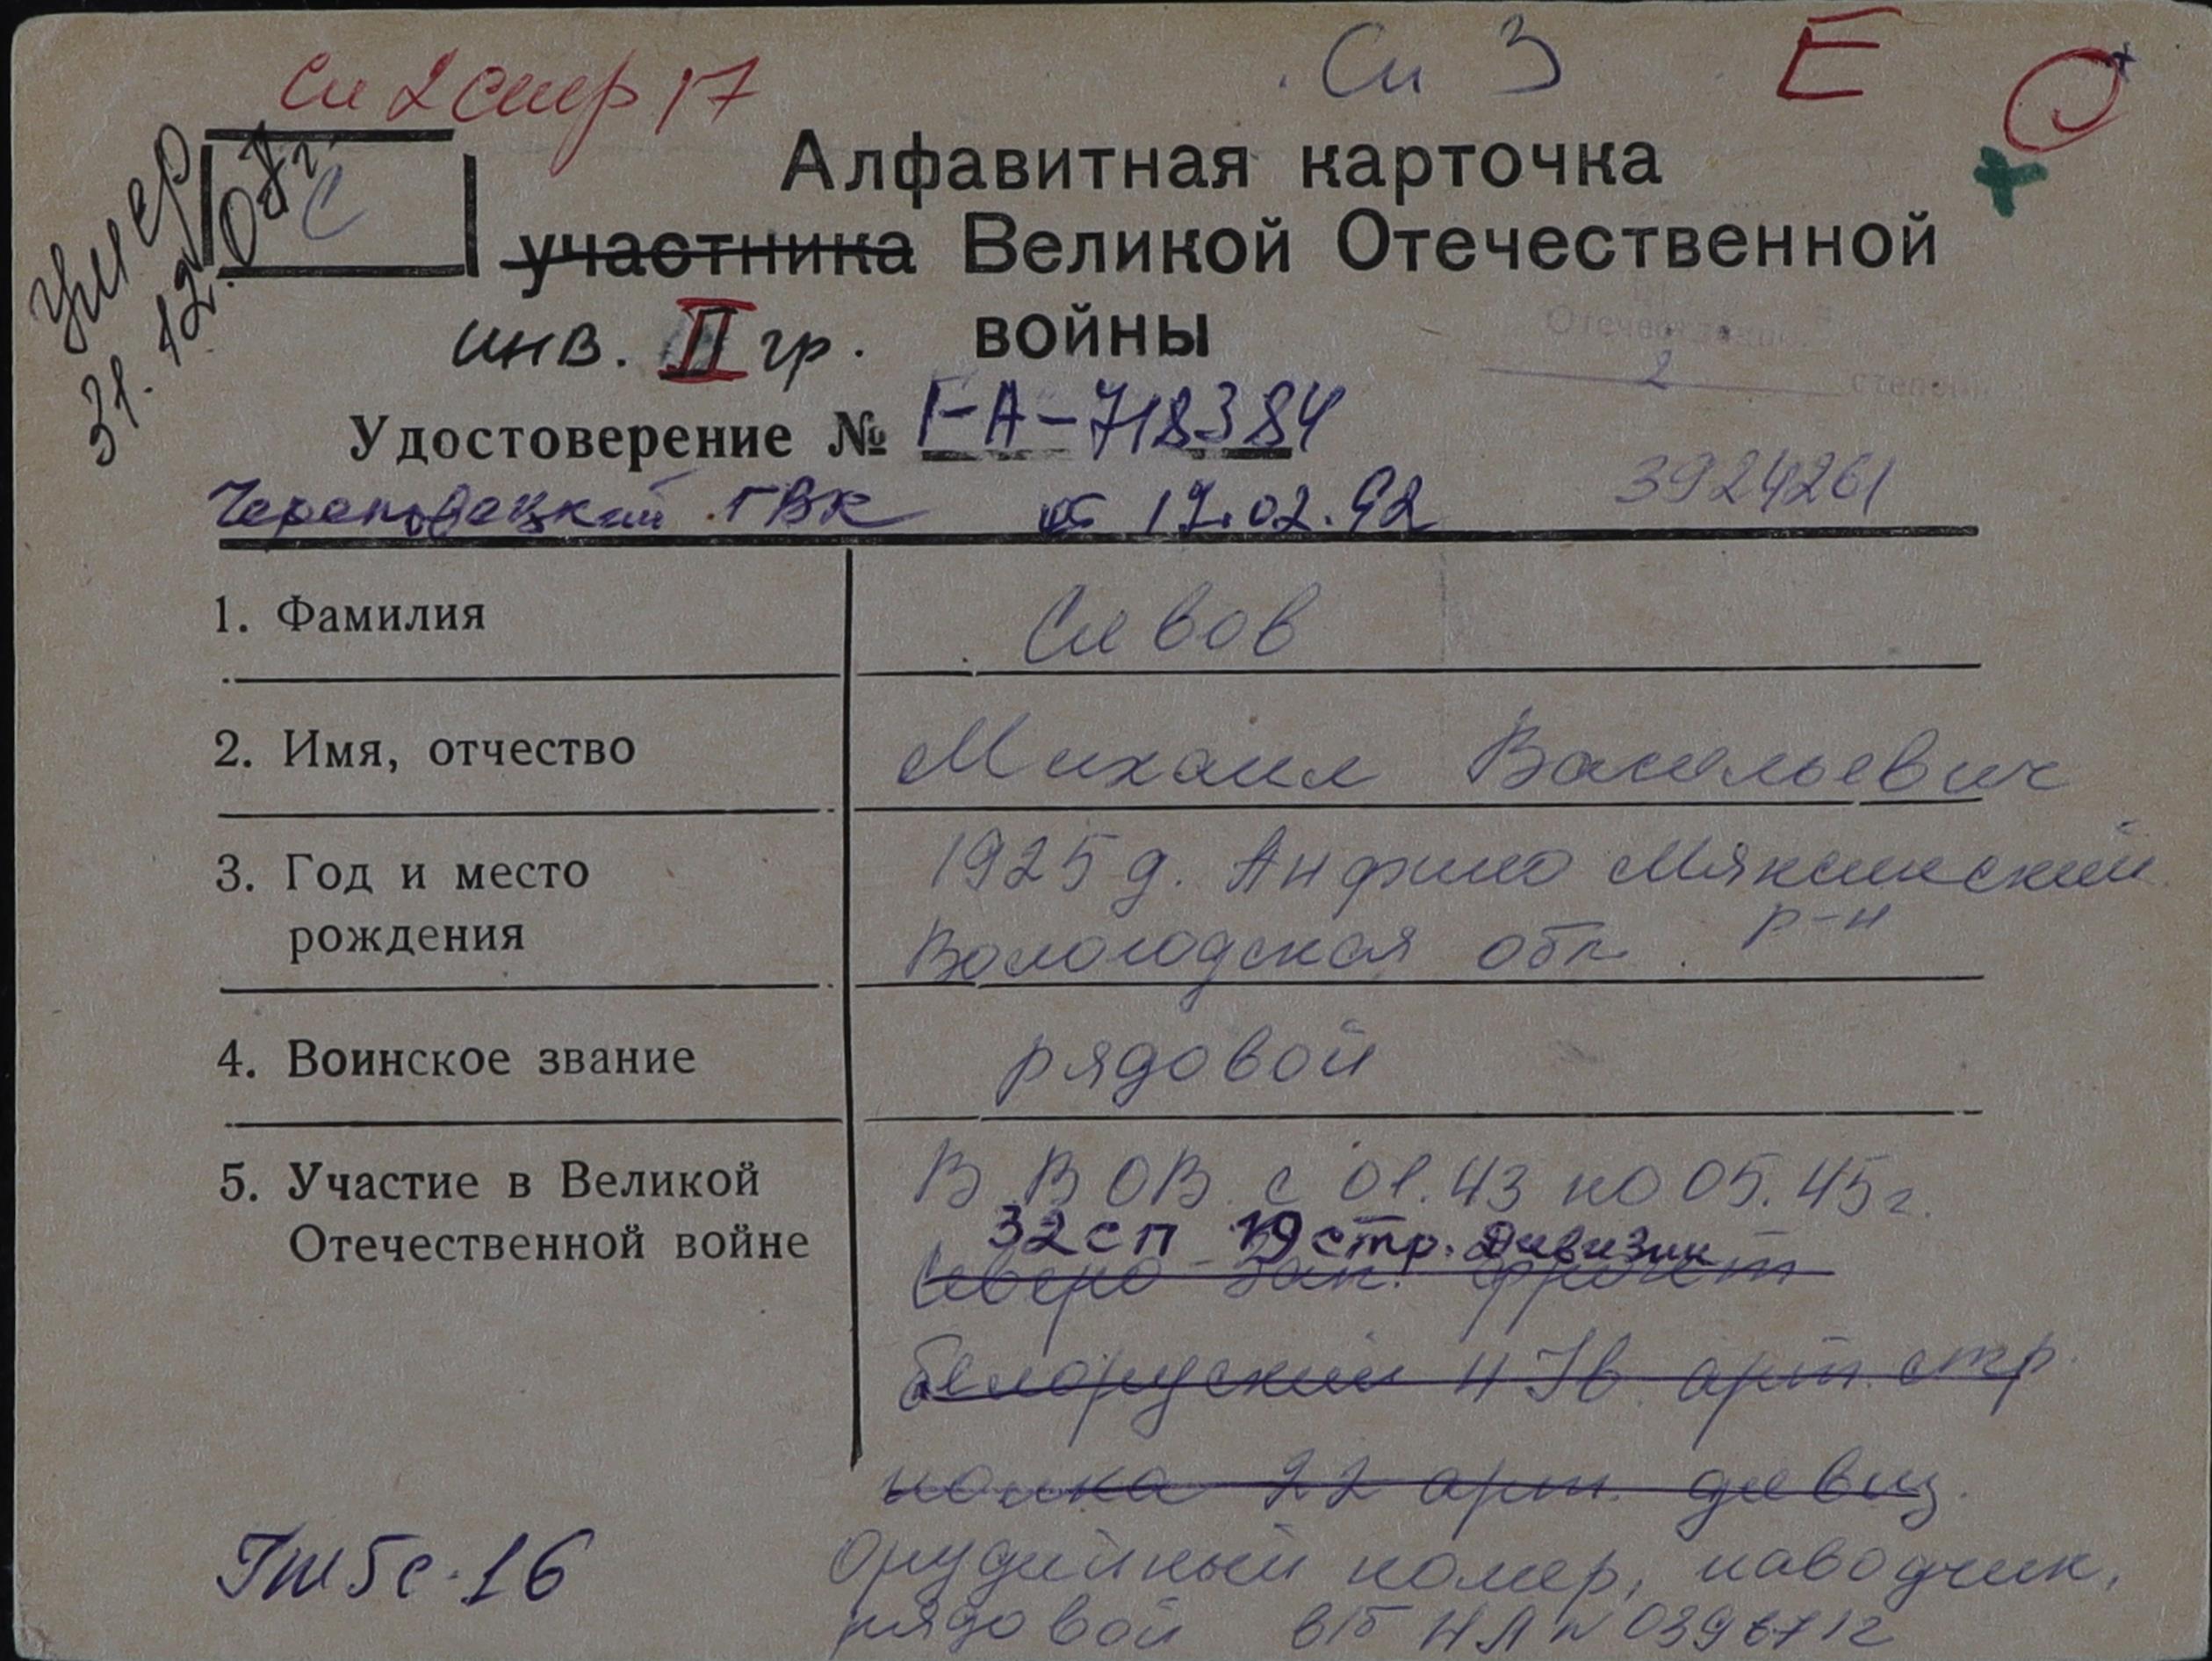 Си 3 Е
умер 31.12.08г.
С
Алфавитная карточка
участника Великой Отечественной
инв. II гр. войны
Отечествен.
2 степени
Удостоверение № ГА-718384
Череповецкий ГВК от 17.02.92 3924261
1. Фамилия Сивов
2. Имя, отчество Михаил Васильевич
3. Год и место 1925 д. Анфимо Мяксинский
рождения Вологодская обл. р-н
4. Воинское звание рядовой
5. Участие в Великой В ВОВ с 01.43 по 05.45г.
32 сп 19 стр. дивизии
Отечественной войне Северо-Зап. фронт
Белоруский арт. стр.
полка 22 арт. дивиз.
орудийный номер, наводчик,
рядовой в/б НЛ №